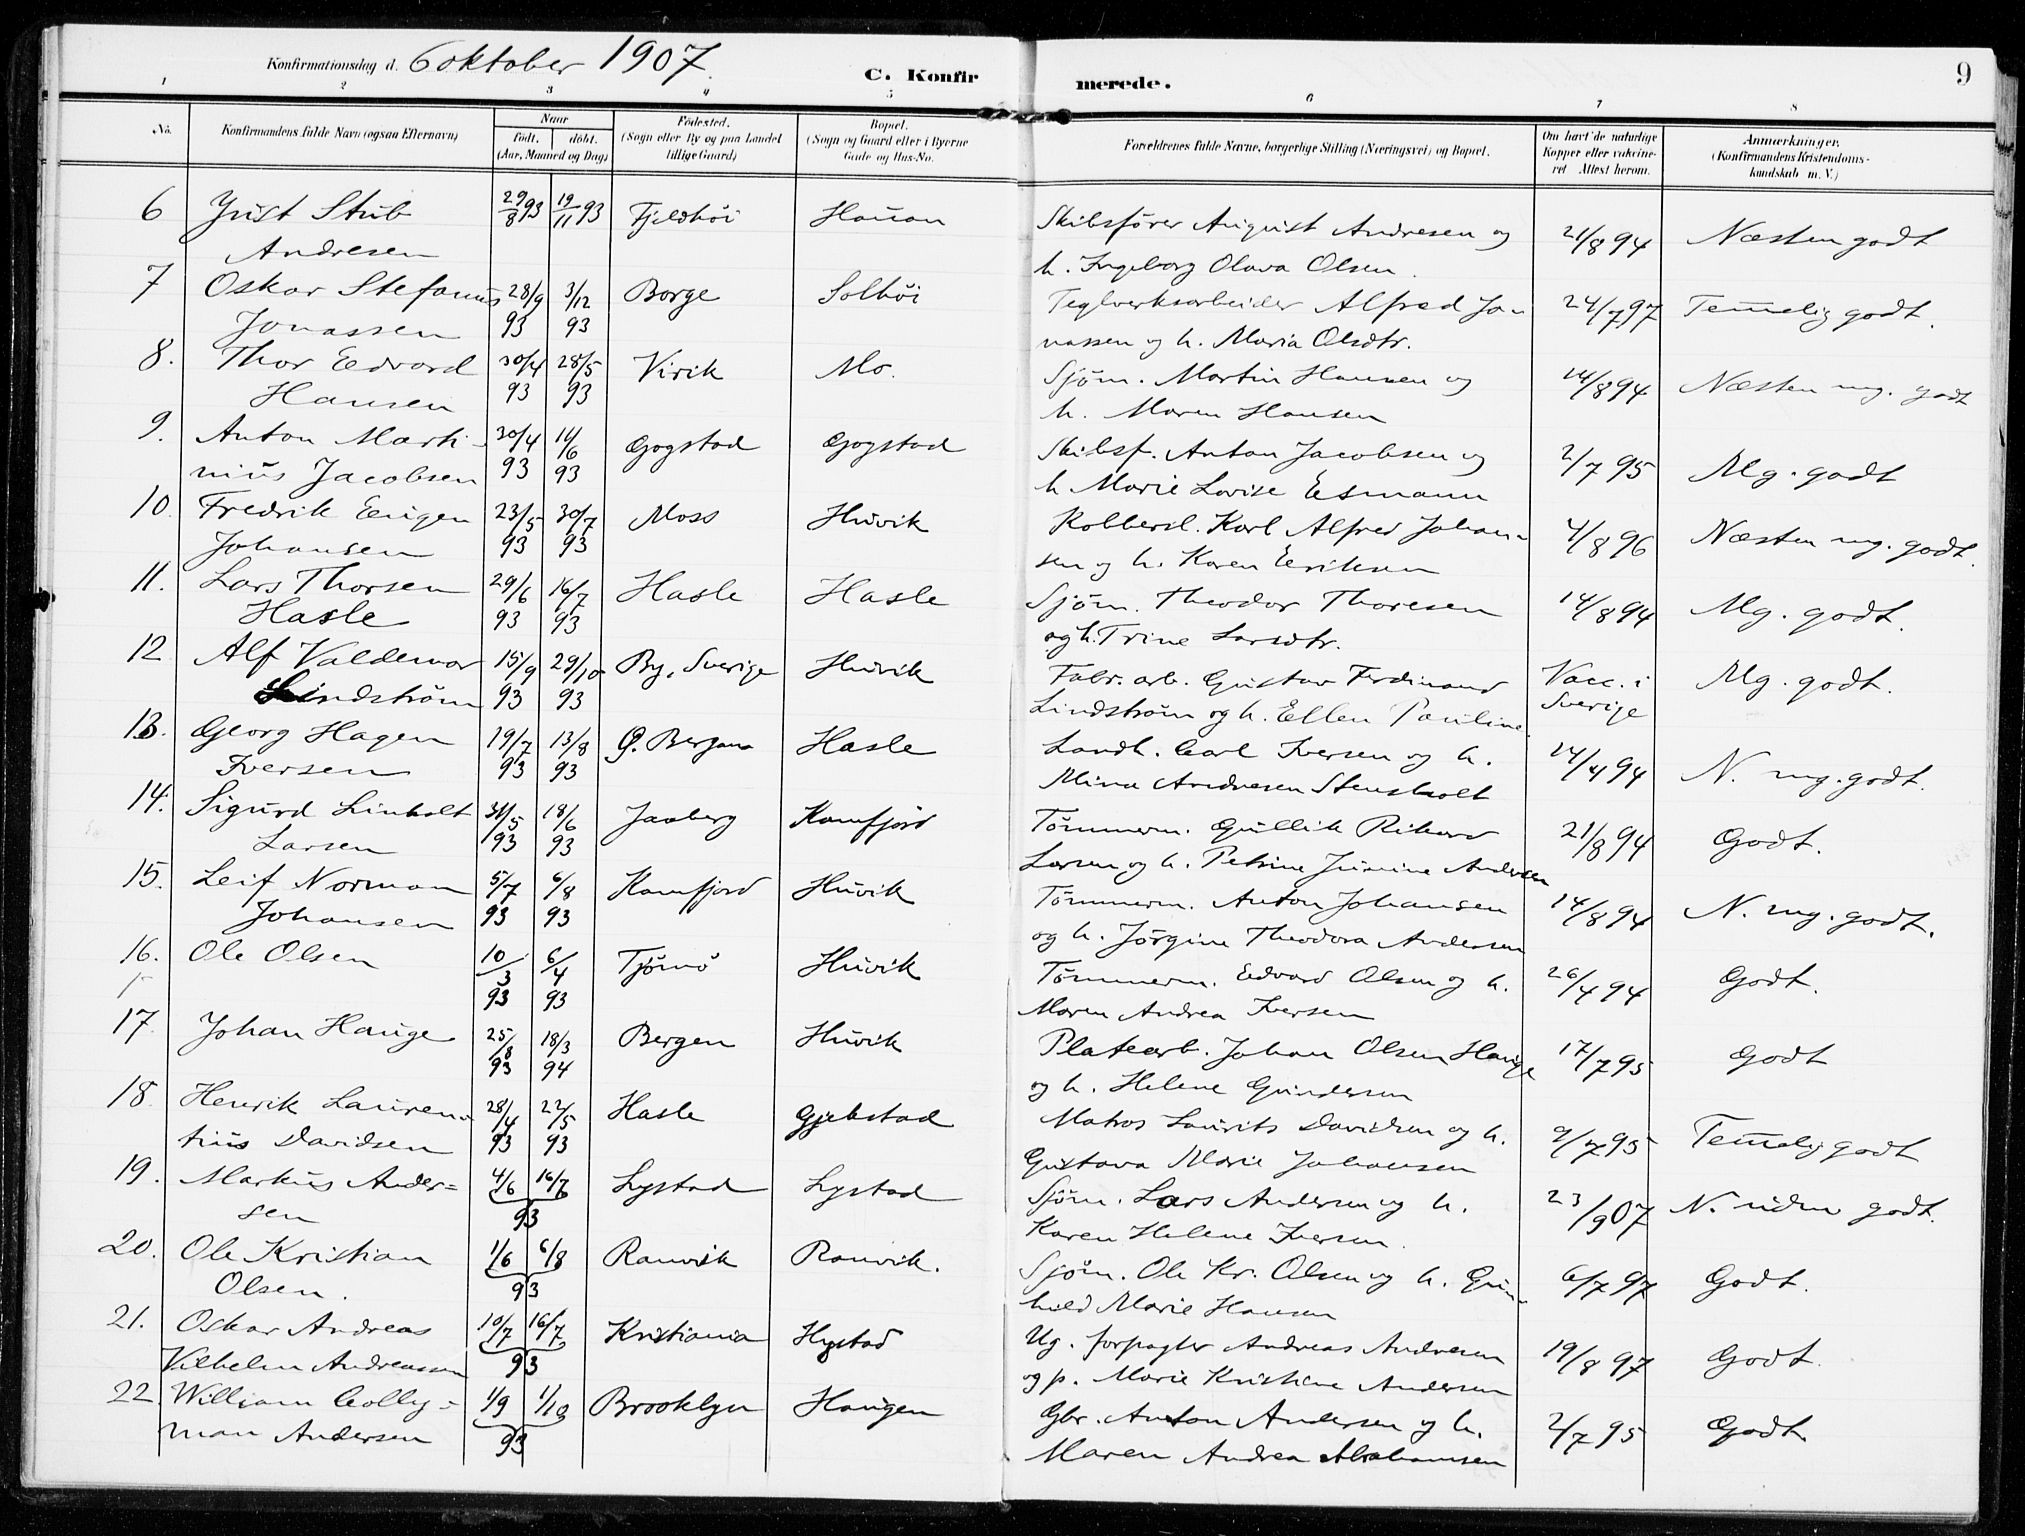 Konfirmationsdag d. 6 oktober 1907.
C. Konfirmerede.
9
1 2 3 4 5 6 7 8
No. Konfirmandens fulde Navn (ogsaa Efternavn) Naar født. døbt. (Aar, Maaned og Dag) Fødested. (Sogn eller By og paa Landet tillige Gaard) Bopæl. (Sogn og Gaard eller i Byerne Gade og Hus-No. Forældrenes fulde Navne, borgerlige Stilling (Næringsvei) og Bopæl. Om havt de naturlige Kopper eller vakcineret Attest herom. Anmærkninger. (Konfirmandens Kristendomskundskab m. V.)
6 Just Stub 29/8 93 19/11 93 Fjeldhöi Hauan Skibsfører August Andresen og 21/8 94 Næsten godt
Andresen h. Ingeborg Olava Olsen.
7 Oskar Stefanus 28/9 3/12 Borge Solhöi Teglverksarbeider Alfred Jo- 24/7 97 Temmelig godt.
Jonassen 93 93 nassen og h. Maria Olsdtr.
8. Thor Edvard 30/4 28/5 Virik Mo. Sjöm. Martin Hansen og 14/8 94 Næsten mg. godt
Hansen 93 93 h. Maren Hansen
9. Anton Marti- 30/4 11/6 Gogstad Gogstad Skibsf. Anton Jacobsen og 2/7 95 Mg. godt
nius Jacobsen 93 93 h Marie Lovise Esmann
10. Fredrik Eugen 23/5 30/7 Moss Huvik Kobbersl. Karl Alfred Johan- 4/8 96 Næsten mg. godt.
Johansen 93 93 sen og h. Karen Eriksen
11. Lars Thorsen 29/6 16/7 Hasle Hasle Sjöm. Theodor Thoresen 14/8 94 Mg. godt.
Hasle 93 93 og h. Trine Larsdtr.
12 Alf Valdemar 15/9 29/10 By, Sverige Huvik Fabr. arb. Gustav Ferdinand Vacc. i Mg. godt.
Lindström 93 93 Lindström og h. Ellen Pauline Sverige
13. Georg Hagen 19/7 13/8 Ø. Bergan Hasle Landh. Carl Iversen og h. 14/4 94 N. mg. godt.
Iversen 93 93 Mina Andresen Stensholt
14. Sigurd Linholt 31/5 18/6 Jaaberg Kamfjord Tömmerm. Gullik Rikard 21/8 94 Godt.
Larsen 93 93 Larsen og h. Petrine Jumine Andersen
15. Leif Norman 5/7 6/8 Kamfjord Huvik Tömmerm. Anton Johansen 14/8 94 N. mg. godt.
Johansen 93 93 og h. Jörgine Theodora Andersen
16. Ole Olsen 10/3 6/4 Tjömö Huvik Tömmerm. Edvard Olsen og h. 26/4 94 Godt.
93 93 Maren Andrea Iversen
17. Johan Hauge 25/8 18/3 Bergen Huvik Platearb. Johan Olsen Hauge 17/7 95 Godt
93 94 og h. Helene Gundersen
18. Henrik Lauren- 28/4 22/5 Hasle Gjekstad Matros Laurits Davidsen og h. 9/7 95 Temmelig godt
tius Davidsen 93 93 Gustava Marie Johansen
19. Markus Ander- 4/6 16/7 Lystad Lystad Sjöm. Lars Andersen og h. 23/9 07 N. uden godt.
sen 93 Karen Helene Iversen.
20. Ole Kristian 1/6 6/8 Ranvik Ranvik. Sjöm. Ole Kr. Olsen og h. Gun- 6/7 97 Godt.
Olsen. 93 hild Marie Hansen
21. Oskar Andreas 10/7 16/7 Kristiania Hystad Ug. forpagter Andreas Andresen 19/8 97 Godt.
Vilhelm Andreassen 93 og p. Marie Kristine Andersen
22. William Colly- 1/9 1/10 Brooklyn Haugen Gbr. Anton Andersen og h. 2/7 95 Godt.
man Andersen 93 Maren Andrea Abrahamsen